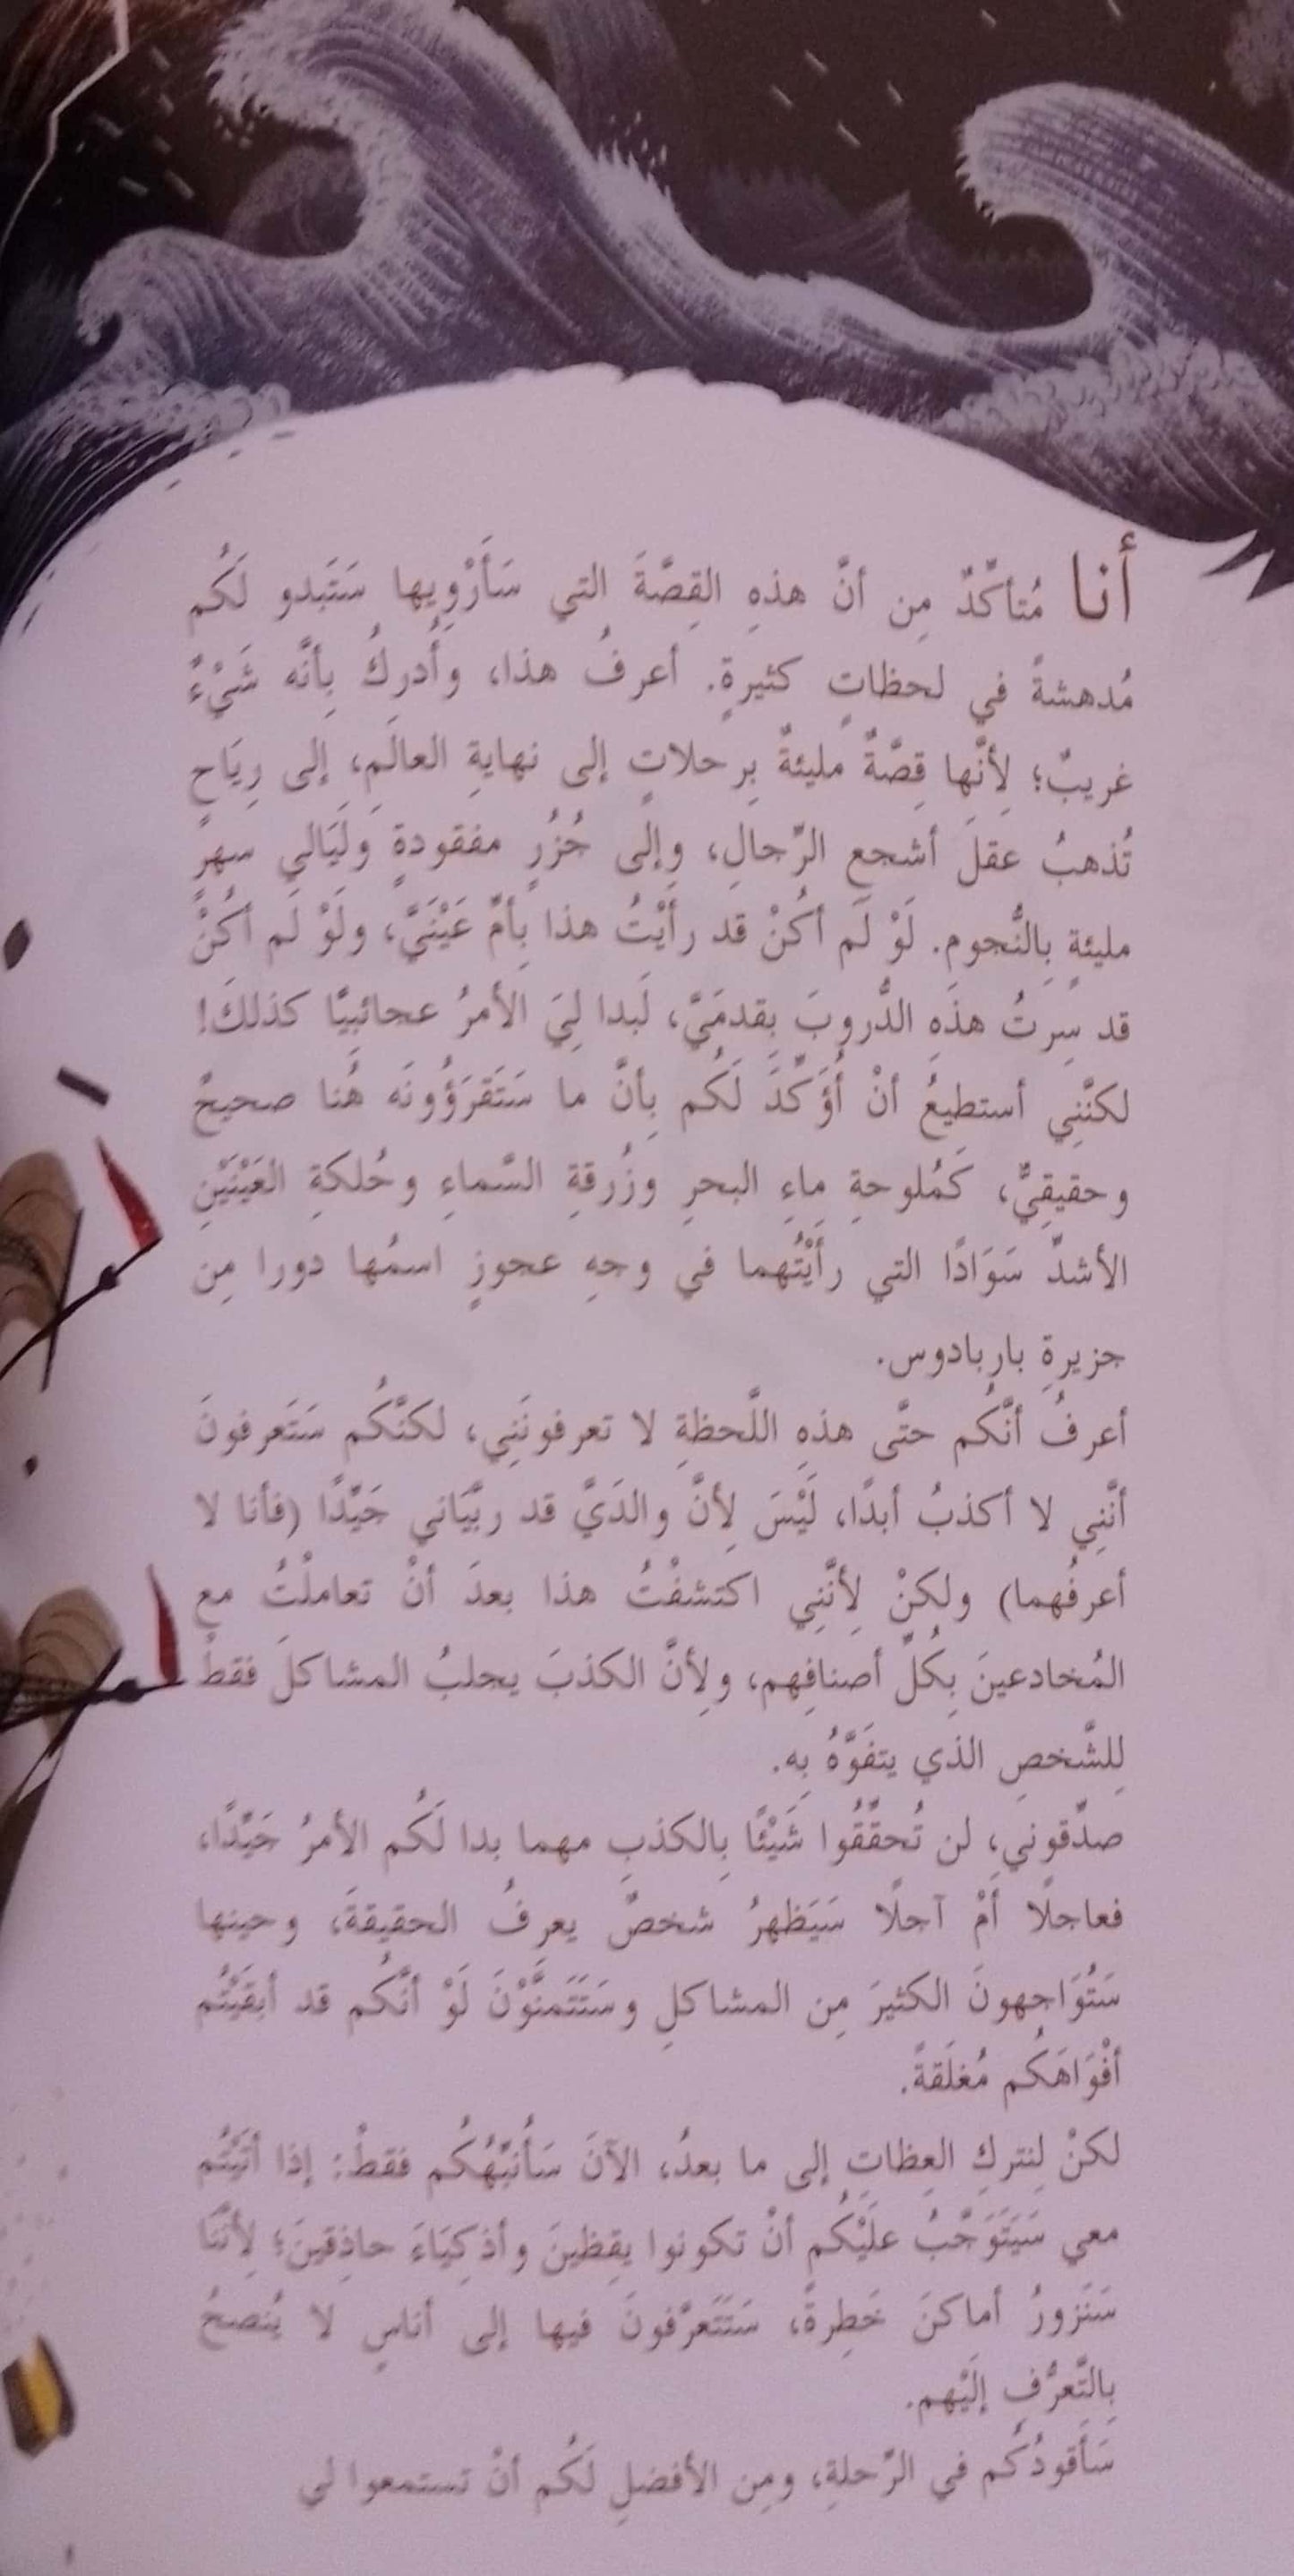 أنا مُتأكِّدٌ مِن أنَّ هذهِ القِصَّةَ التي سَأَرْوِيها سَتَبدو لَكُم
مُدهشةً في لحظاتٍ كثيرةٍ. أعرفُ هذا، وأُدركُ بِأنَّه شَيْءٌ
غريبٌ؛ لِأنَّها قِصَّةٌ مليئةٌ بِرحلاتٍ إلى نهايةِ العالَمِ، إلى رِيَاحٍ
تُذهبُ عقلَ أشجعِ الرِّجالِ، وإلى جُزُرٍ مفقودةٍ ولَيَالي سهرٍ
مليئةٍ بِالنُّجومِ. لَوْ لَم أكُنْ قد رأَيْتُ هذا بِأمِّ عَيْنَيَّ، ولَوْ لَم أكُنْ
قد سِرتُ هذهِ الدُّروبَ بِقدمَيَّ، لَبدا لِيَ الأمرُ عجائبِيًّا كذلكَ!
لكنَّنِي أستطيعُ أنْ أُؤَكِّدَ لَكُم بِأنَّ ما سَتَقرَؤُونَه هُنا صحيحٌ
وحقيقِيٌّ، كَمُلوحةِ ماءِ البحرِ وزُرقةِ السَّماءِ وحُلكةِ العَيْنَيْنِ
الأشدِّ سَوَادًا التي رأَيْتُهما في وجهِ عجوزٍ اسمُها دورا مِن
جزيرةِ باربادوس.
أعرفُ أنَّكُم حتَّى هذهِ اللَّحظةِ لا تعرفونَنِي، لكنَّكُم سَتَعرفونَ
أنَّنِي لا أكذبُ أبدًا، لَيْسَ لِأنَّ والدَيَّ قد ربَّيَاني جَيِّدًا (فأنا لا
أعرفُهما) ولكنْ لِأنَّنِي اكتشفْتُ هذا بعدَ أنْ تعاملْتُ مع
المُخادعينَ بِكُلِّ أصنافِهم، ولِأنَّ الكذبَ يجلبُ المشاكلَ فقطْ
لِلشَّخصِ الذي يتفَوَّهُ بِه.
صدِّقوني، لن تُحقِّقُوا شَيْئًا بِالكذبِ مهما بدا لَكُم الأمرُ جَيِّدًا،
فعاجلًا أمْ آجلًا سَيَظهرُ شخصٌ يعرفُ الحقيقةَ، وحينها
سَتُوَاجِهونَ الكثيرَ مِن المشاكلِ وسَتَتَمنَّوْنَ لَوْ أنَّكُم قد أبقَيْتُم
أفْوَاهَكُم مُغلَقةً.
لكنْ لِنتركِ العِظاتِ إلى ما بعدُ، الآنَ سَأُنبِّهُكُم فقطْ: إذا أتَيْتُم
معي سَيَتَوَجَّبُ علَيْكُم أنْ تكونوا يقِظينَ وأذكِيَاءَ حاذِقينَ؛ لِأنَّنَا
سَنَزورُ أماكنَ خَطِرةً، سَتَتَعرَّفونَ فيها إلى أناسٍ لا يُنصحُ
بِالتَّعرُّفِ إلَيْهم.
سَأقودُكُم في الرِّحلةِ، ومِن الأفضلِ لَكُم أنْ تستمعوا لي